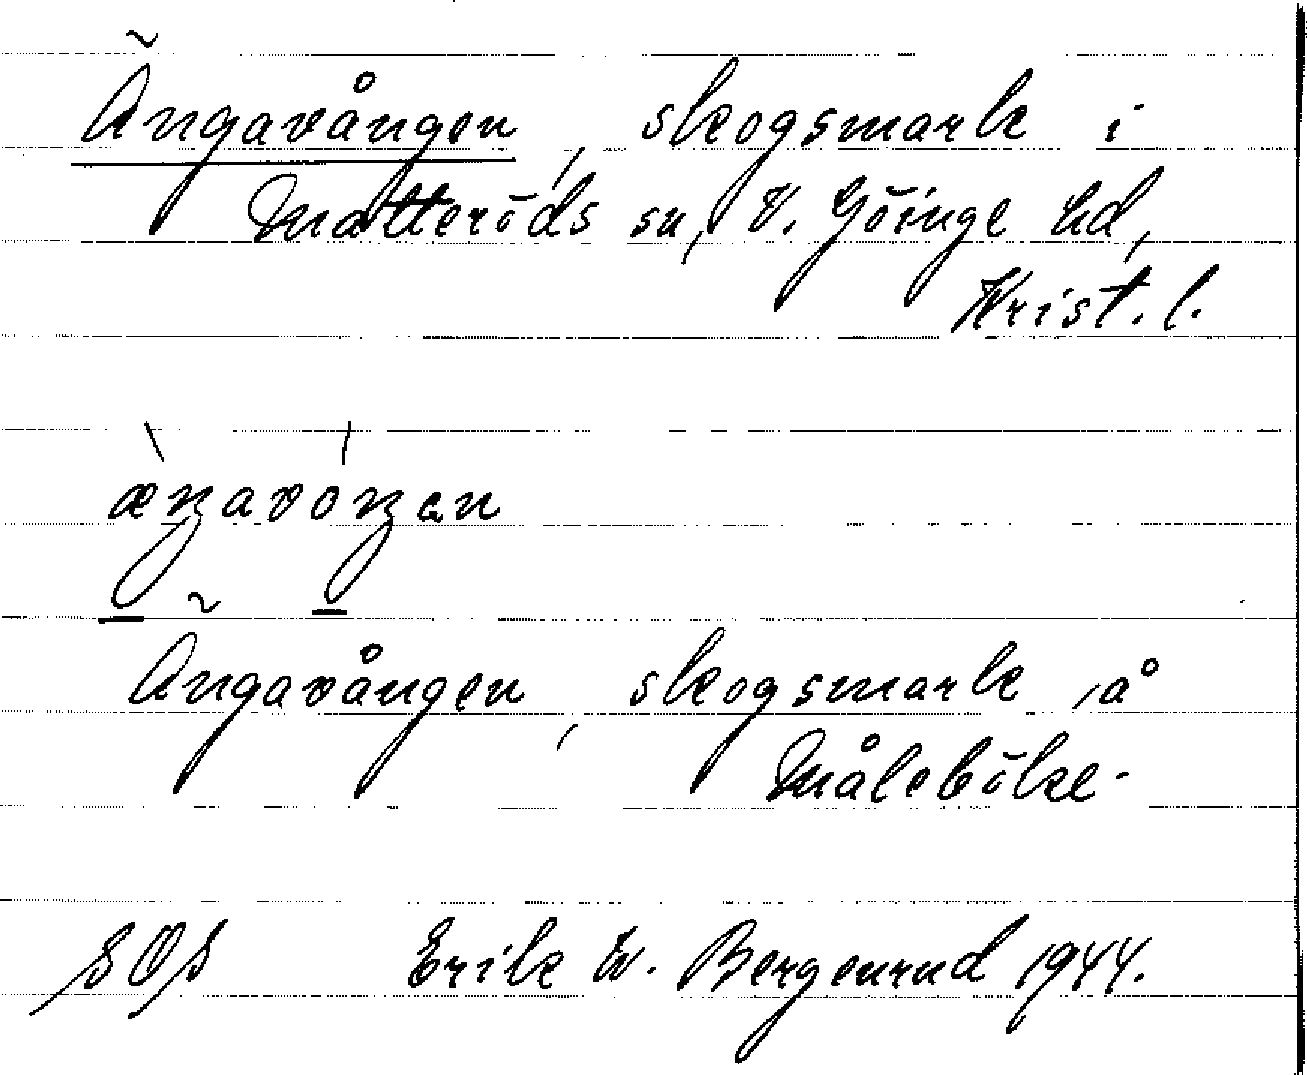 Ängavången, skogsmark i
Matteröds sn, V. Göinge hd,
Krist. l.
æŋavóŋan
Ängavången, skogsmark å
Måleböke.
SOS Erik W. Bergenrud 1944.